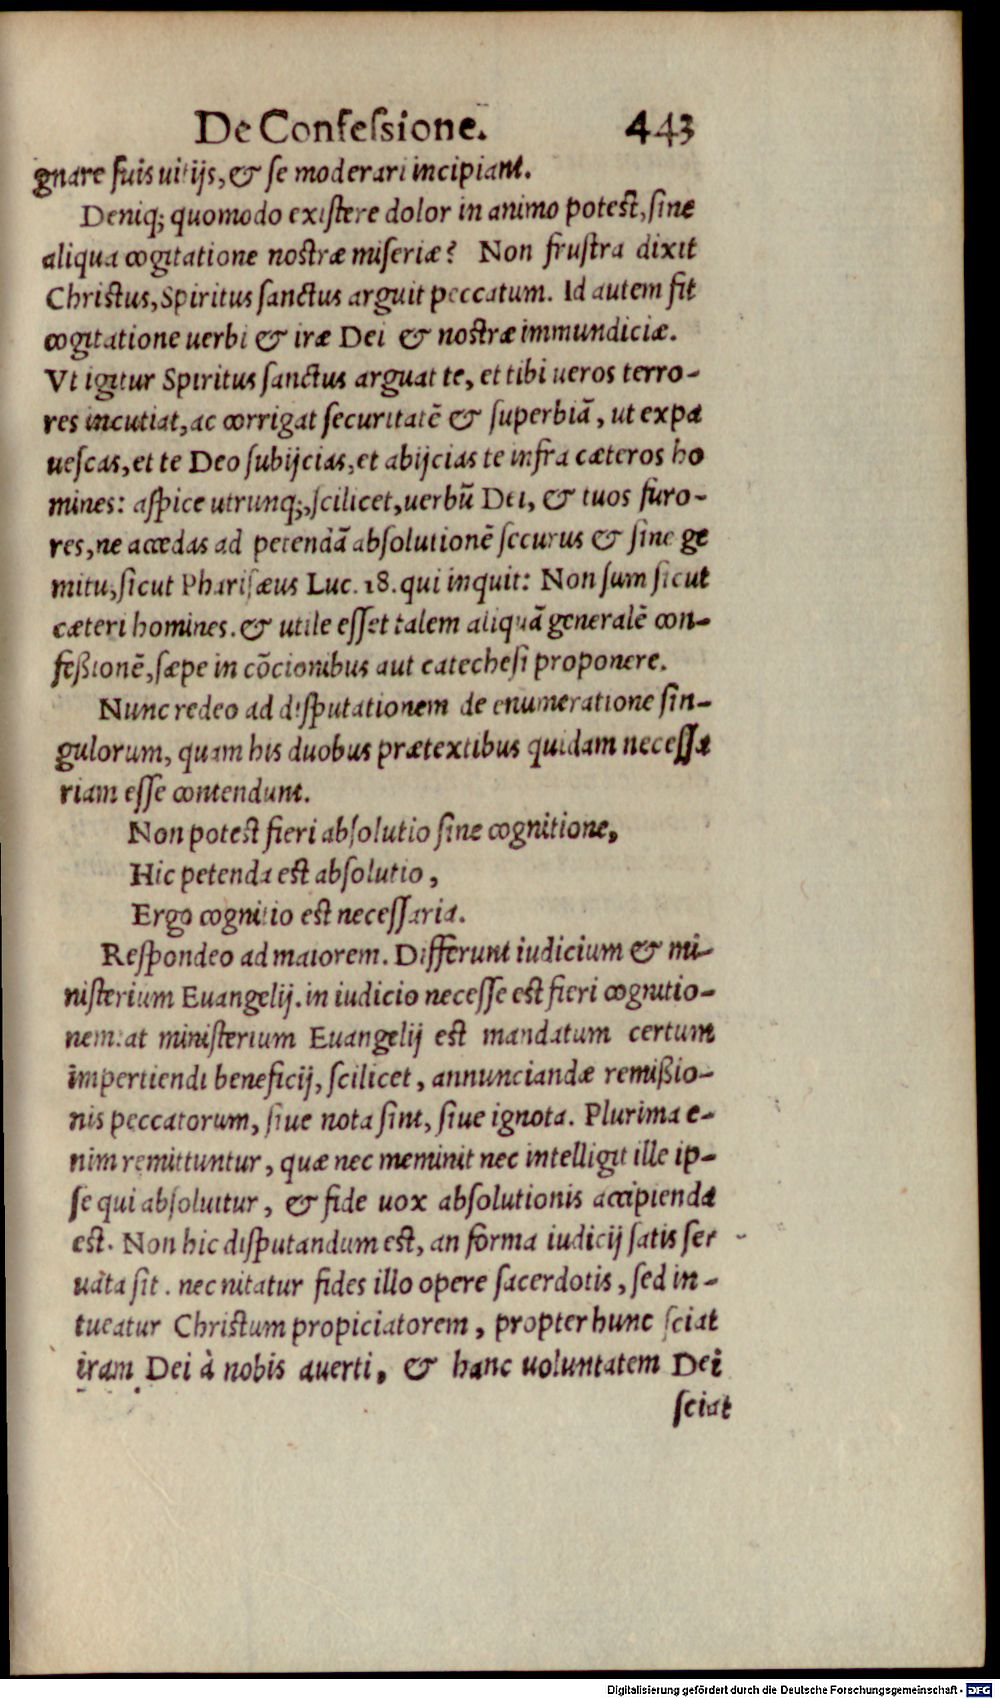 De Confeſsione. 443
gnare ſuis uitijs, & ſe moderari incipiant.
Deniq; quomodo exiſtere dolor in animo poteſt, ſine
aliqua cogitatione noſtræ miſeriæ? Non fruſtra dixit
Chriſtus, Spiritus ſanctus arguit peccatum. Id autem fit
cogitatione uerbi & iræ Dei & noſtræ immundiciæ.
Vt igitur Spiritus ſanctus arguat te, et tibi ueros terro-
res incutiat, ac corrigat ſecuritatē & ſuperbiā, ut expa
ueſcas, et te Deo ſubijcias, et abijcias te infra cæteros ho
mines: aſpice utrunq;, ſcilicet, uerbū Dei, & tuos furo-
res, ne accedas ad petendā abſolutionē ſecurus & ſine ge
mitu, ſicut Phariſæus Luc. 18. qui inquit: Non ſum ſicut
cæteri homines. & utile eſſet talem aliquā generalē con-
feßionē, ſæpe in cōcionibus aut catecheſi proponere.
Nunc redeo ad diſputationem de enumeratione ſin-
gulorum, quam his duobus prætextibus quidam neceſſa
riam eſſe contendunt.
Non poteſt fieri abſolutio ſine cognitione,
Hic petenda eſt abſolutio,
Ergo cognitio eſt neceſſaria.
Reſpondeo ad maiorem. Differunt iudicium & mi-
niſterium Euangelij. in iudicio neceſſe eſt fieri cognitio-
nem: at miniſterium Euangelij eſt mandatum certum
impertiendi beneficij, ſcilicet, annunciandæ remißio-
nis peccatorum, ſiue nota ſint, ſiue ignota. Plurima e-
nim remittuntur, quæ nec meminit nec intelligit ille ip-
ſe qui abſoluitur, & fide uox abſolutionis accipienda
eſt. Non hic diſputandum eſt, an forma iudicij ſatis ſer
uata ſit. nec nitatur fides illo opere ſacerdotis, ſed in-
tueatur Chriſtum propiciatorem, propter hunc ſciat
iram Dei à nobis auerti, & hanc uoluntatem Dei
ſciat
Digitalisierung gefördert durch die Deutsche Forschungsgemeinschaft - DFG